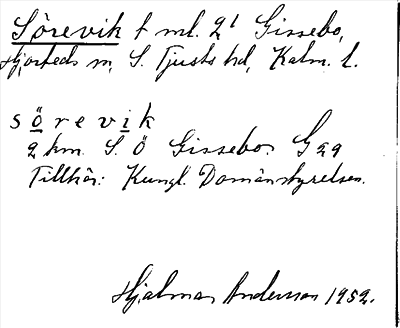 Sörevik t ml. 2¹ Gissebo,
Hjorteds sn, S. Tjusts hd, Kalm. l.
sörevik
2 km. S. Ö Gissebo. G 29
Tillhör: Kungl. Domänstyrelsen.
Hjalmar Andersson 1952.